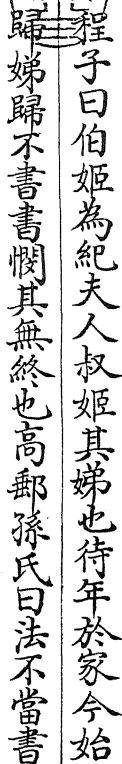 程子曰伯姬為紀夫人叔姬其娣也待年於家今始
歸娣歸不書書憫其無終也高郵孫氏曰法不當書